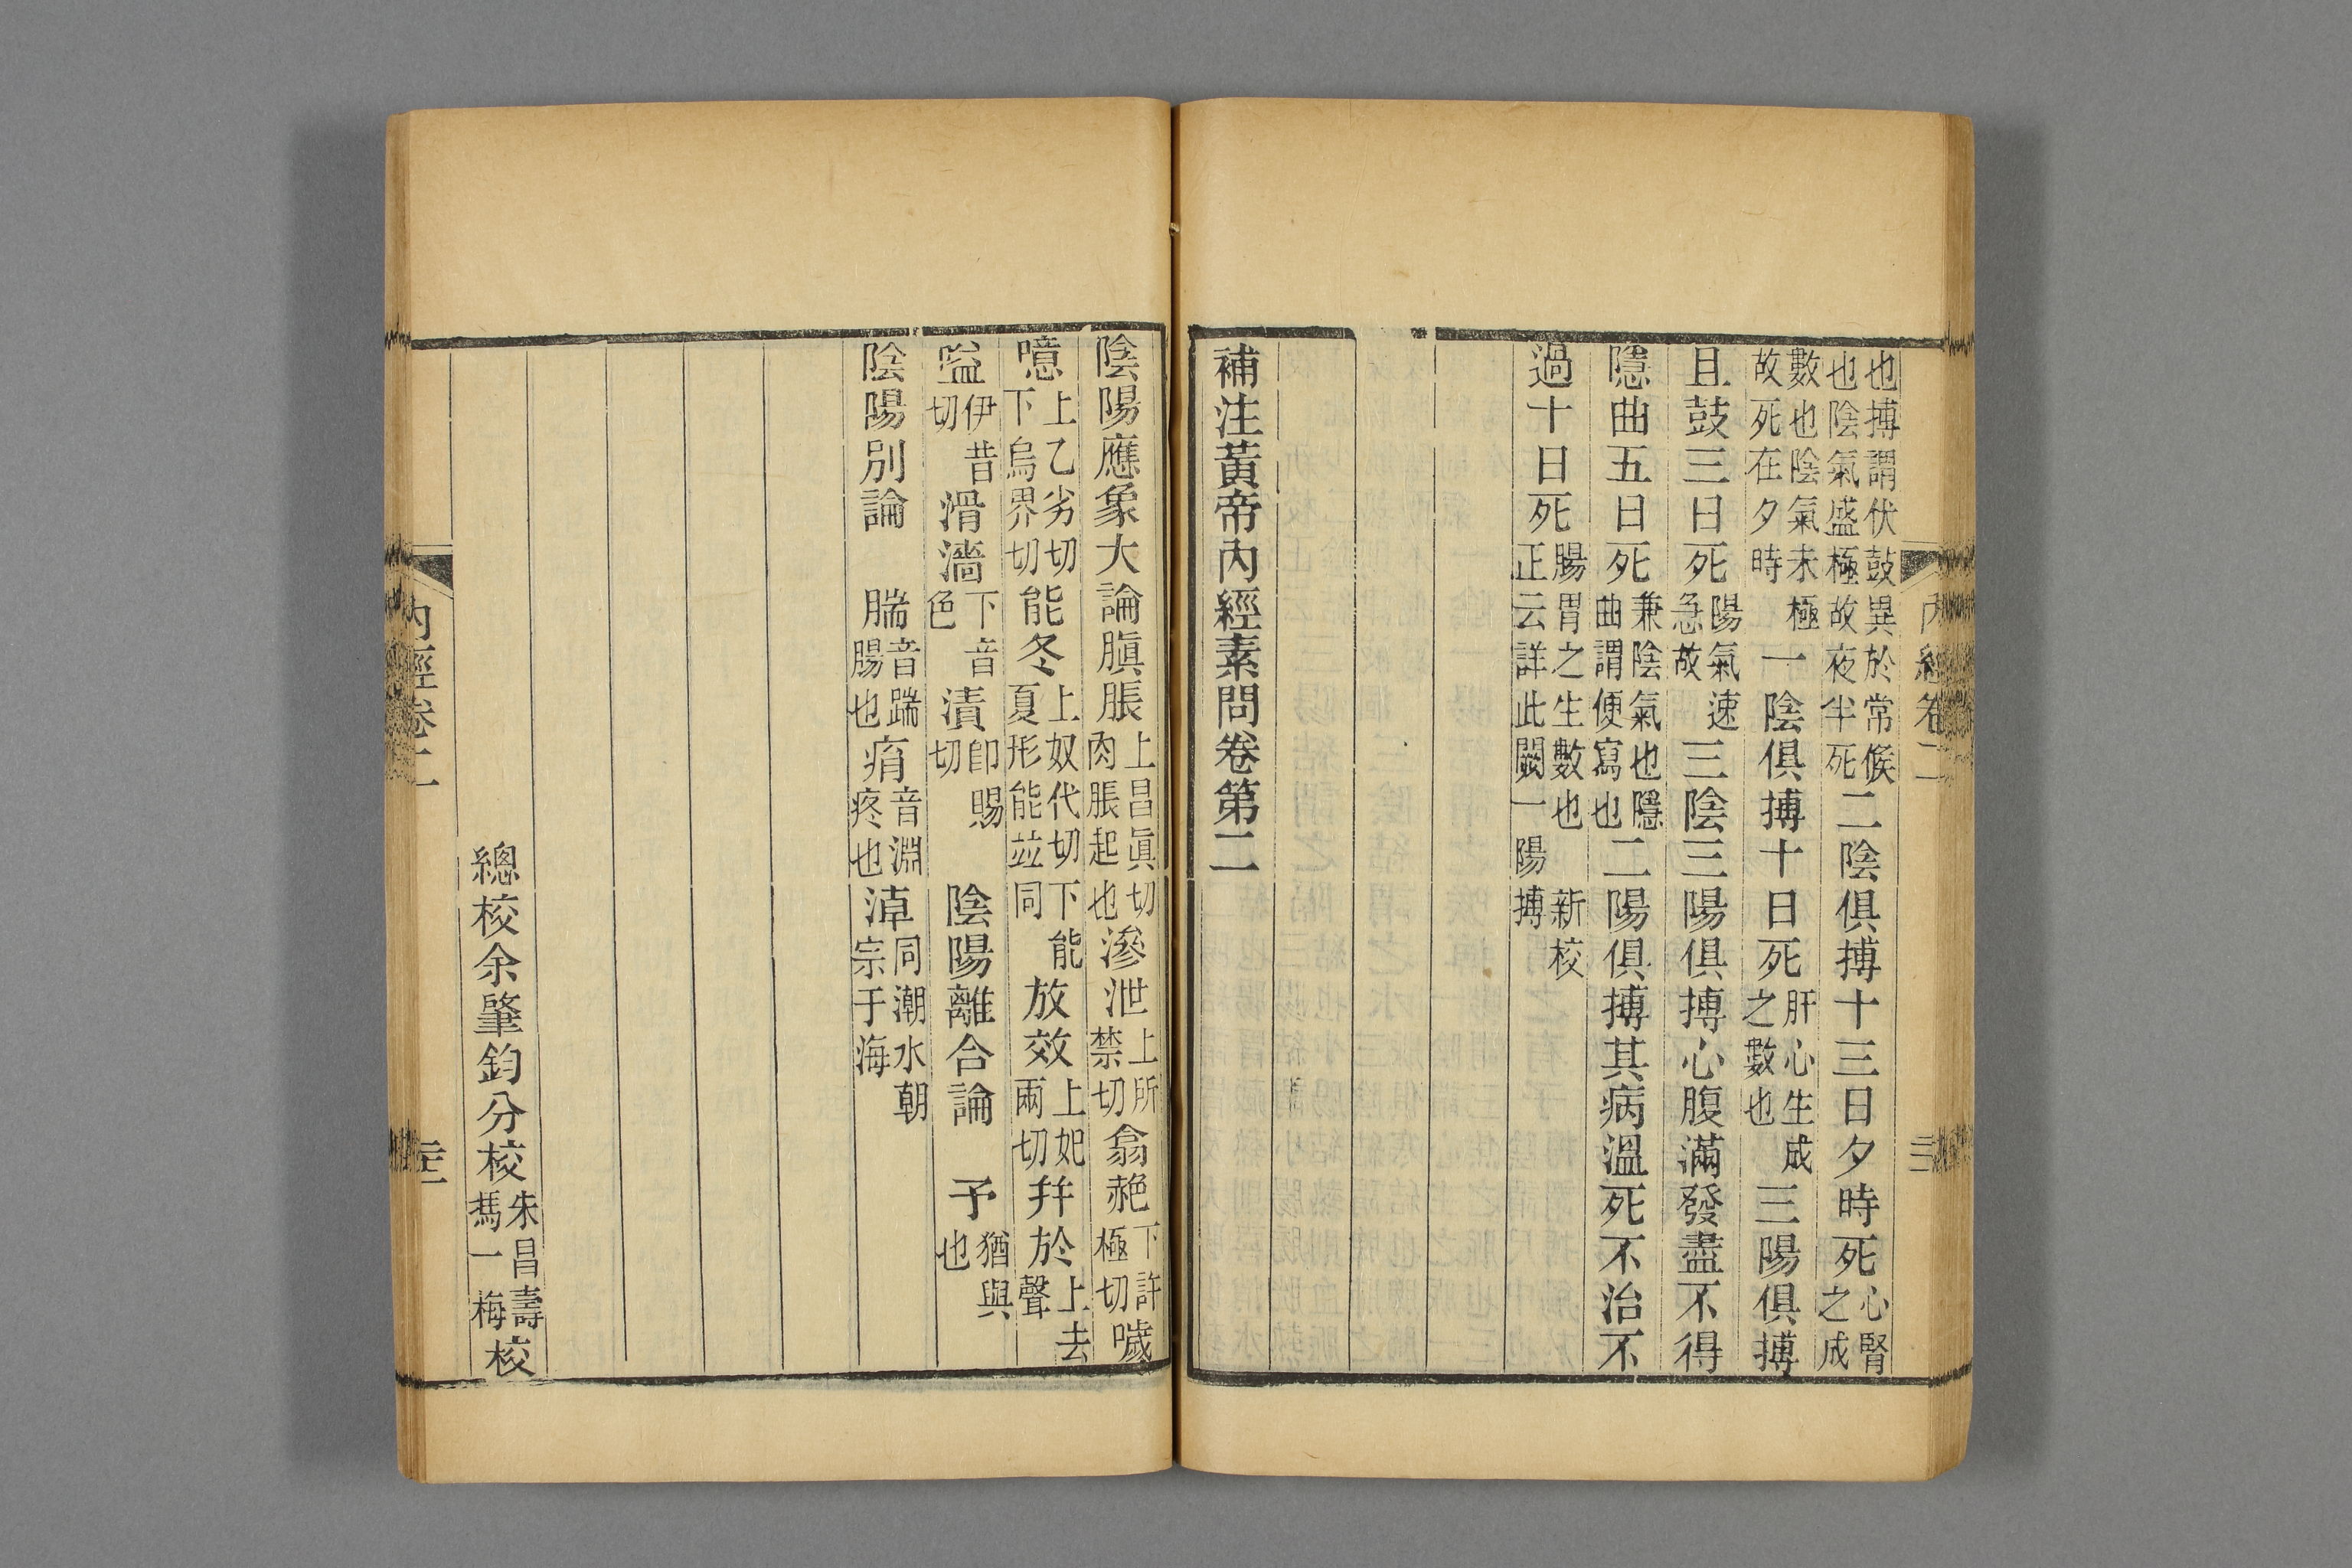 也搏謂伏鼓異於常候也陰氣盛極故夜半死二陰俱搏十三日夕時死心腎之成
數也陰氣未極故死在夕時一陰俱搏十日死肝心生成之數也三陽俱搏
且鼓三日死陽氣速急故三陰三陽俱搏心腹滿發盡不得
隱曲五日死兼陰氣也隱曲謂便寫也二陽俱搏其病溫死不治不
過十日死腸胃之生數也新校正云詳此闕一陽搏
補注黃帝內經素問卷第二
陰陽應象大論䐜脹上昌眞切肉脹起也滲泄上所禁切翕赩下許極切噦
噫上乙劣切下烏界切能冬上奴代切下能夏形能並同放效上妃兩切幷於上去聲
嗌伊昔切滑濇下音色漬卽賜切陰陽離合論予猶與也
陰陽別論腨音踹腸也痟音淵疼也淖同潮水朝宗于海
總校余肇鈞分校朱昌壽馮一梅校
內經卷二